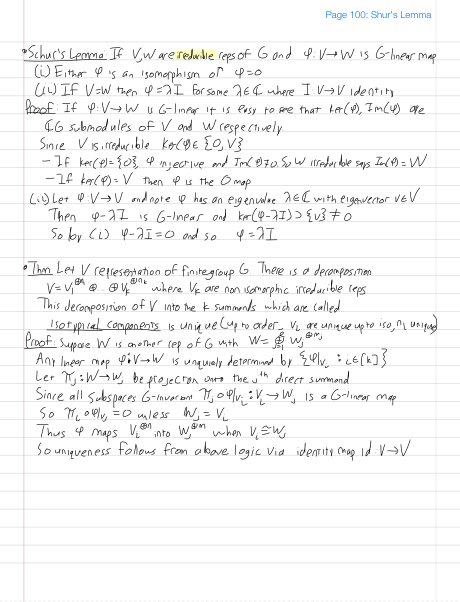 Page 100: Shur's Lemma
• Schur's Lemma: If V,W are irreducible reps of G and φ: V→W is G-linear map
(i) Either φ is an isomorphism or φ=0
(ii) If V=W then φ=λI for some λ∈ℂ where I:V→V identity
Proof: If φ:V→W is G-linear it is easy to see that ker(φ), Im(φ) are
ℂG submodules of V and W respectively
Since V is irreducible ker(φ)∈{0,V}
- If ker(φ)={0}, φ injective and Im(φ)≠0. So W irreducible says Im(φ)=W
- If ker(φ)=V then φ is the 0 map
(ii) Let φ:V→V and note φ has an eigenvalue λ∈ℂ with eigenvector v∈V
Then φ-λI is G-linear and ker(φ-λI)⊃{v}≠0
So by (i) φ-λI=0 and so φ=λI
• Thm Let V representation of finite group G. There is a decomposition
V=V₁^⊕n₁ ⊕ … ⊕V_k^⊕n_k where V_k are non isomorphic irreducible reps
This decomposition of V into the k summands which are called
Isotypical Components is unique (up to order, V_i are unique up to iso, n_i unique)
Proof: Suppose W is another rep of G with W=⊕ W_j^⊕m_j
Any linear map φ:V→W is uniquely determined by {φ|V_i : i∈[k]}
Let π_j:W→W_j be projection onto the j^th direct summand
Since all subspaces G-invariant π_j∘φ|V_i:V_i→W_j is a G-linear map
So π_i∘φ|V_i=0 unless W_j=V_i
Thus φ maps V_i^⊕n into W_j^⊕m when V_i≅W_j
So uniqueness follows from above logic via identity map id:V→V